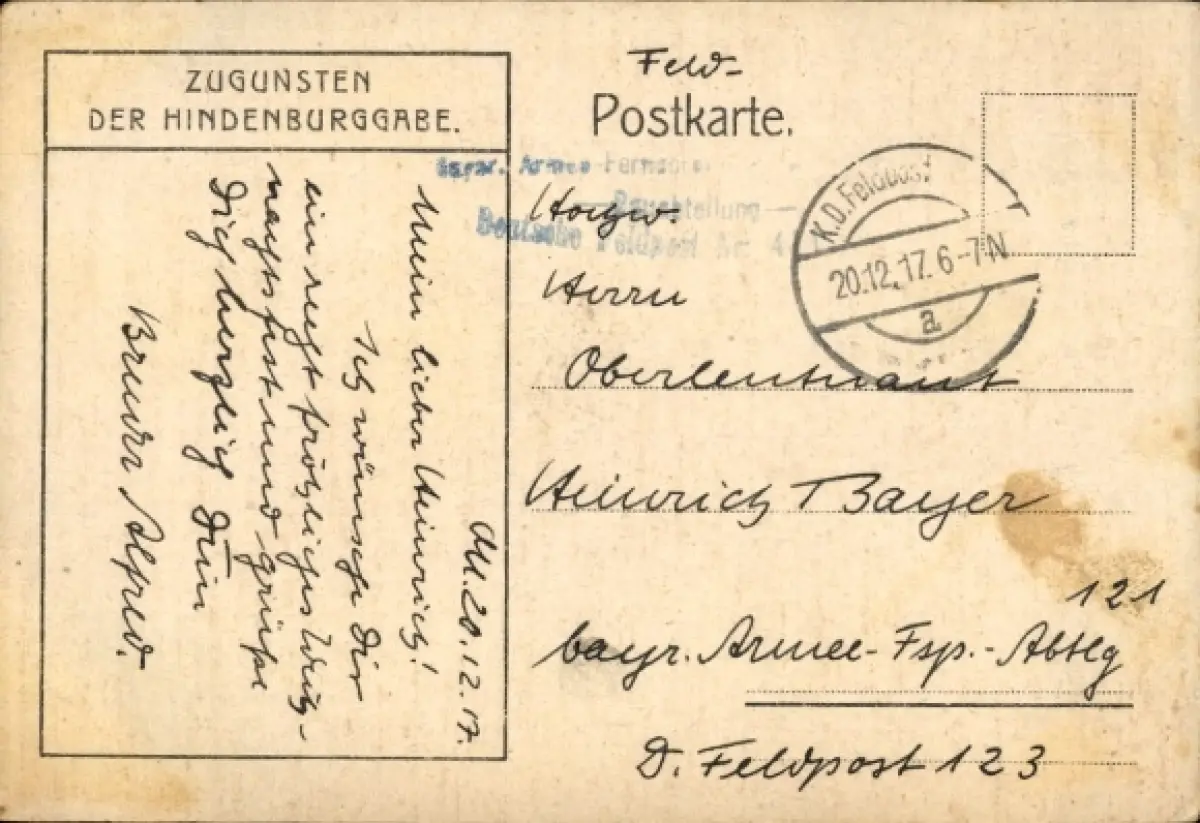 ZUGUNSTEN
DER HINDENBURGGABE.
M. 20.12.17.
Mein lieber Heinrich!
Ich wünsche Dir
ein recht fröhliches Weih-
nachtsfest und grüße
Dich herzlich Dein
Bruder Alfred.
Feld-
Postkarte.
Bayr. Armee-Fernspr.
Bauabteilung
Deutsche Feldpost Nr. 4
K.D. Feldpost
20.12.17. 6-7 N
a
Hochw.
Herrn
Oberleutnant
Heinrich Bayer
121
bayr. Armee-Fsp.-Abtlg
D. Feldpost 123